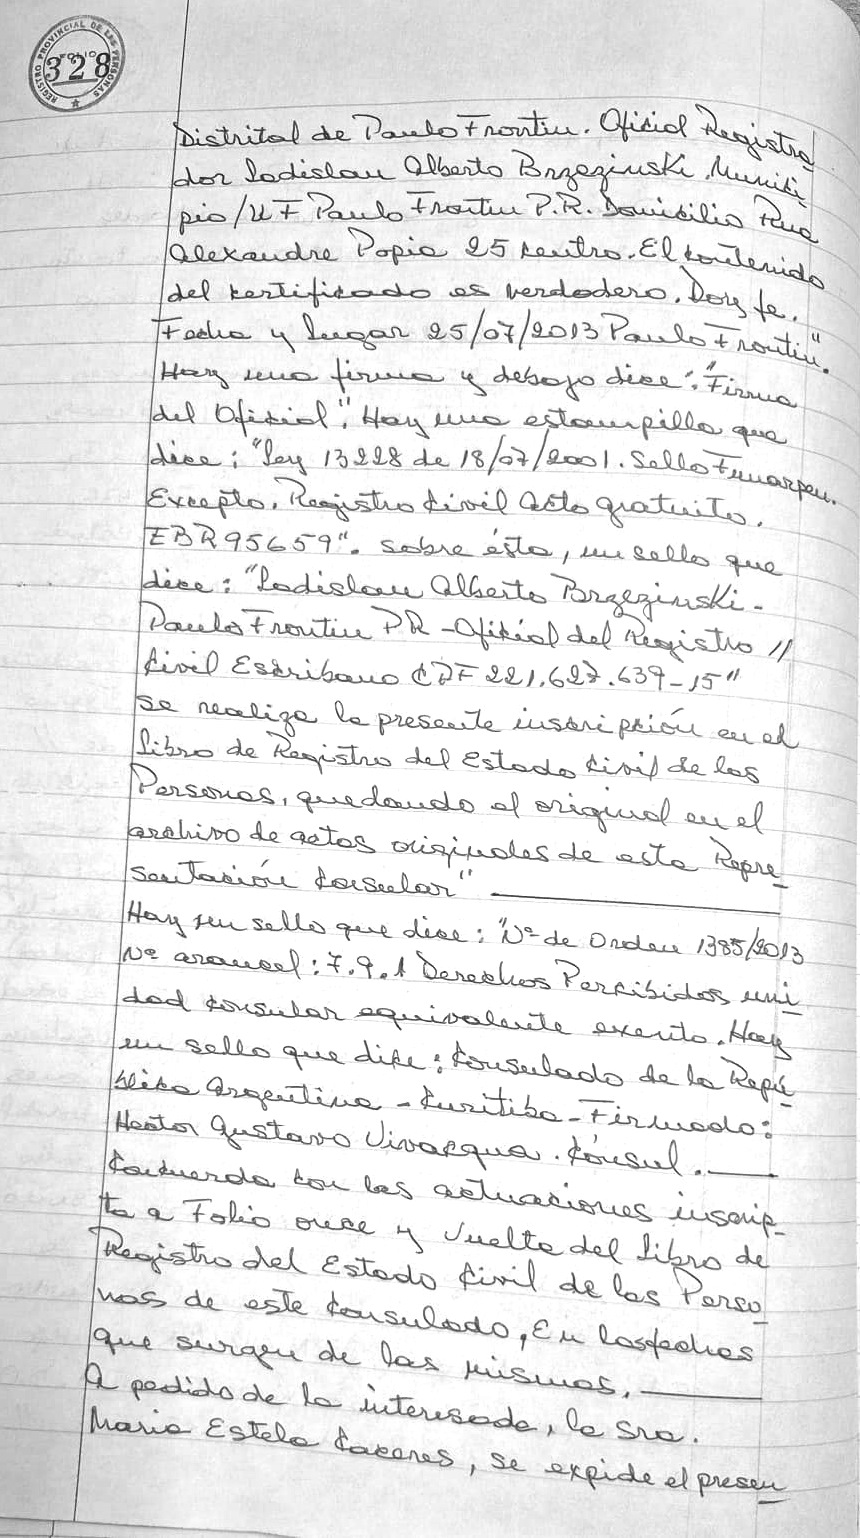 REGISTRO PROVINCIAL DE LAS PERSONAS
FOLIO
328
Distrital de Paulo Frontin. Oficial Registra
dor Ladislau Alberto Brzezinski. Munici
pio/UF Paulo Frontin P.R. Domicilio Rua
Alexandre Popia 25 centro. El contenido
del certificado es verdadero. Doy fe.
Fecha y lugar 25/07/2013 Paulo Frontin".
Hay una firma y debajo dice: "Firma
del Oficial". Hay una estampilla que
dice: "Ley 13228 de 18/07/2001. Sello Funarpen.
Excepto. Registro Civil Acto gratuito.
EBR95659". Sobre ésta, un sello que
dice: "Ladislau Alberto Brzezinski-
Paulo Frontin PR - Oficial del Registro //
Civil Escribano CPF 221.627.639-15"
se realiza la presente inscripción en el
Libro de Registro del Estado Civil de las
Personas, quedando el original en el
archivo de actos originales de esta Repre_
sentación Consular"
Hay un sello que dice: "Nº de Orden 1385/2013
Nº arancel: 7.9.1 Derechos Percibidos uni_
dad consular equivalente exento. Hay
un sello que dice: Consulado de la Repú_
blica Argentina - Curitiba - Firmado:
Hector Gustavo Vivacqua. Cónsul.
Concuerda con las actuaciones inscrip_
ta a Folio once y Vuelta del Libro de
Registro del Estado Civil de las Perso_
nas de este Consulado, En las fechas
que surgen de las mismas,
A pedido de la interesada, la Sra.
Maria Estela Caceres, se expide el presen_